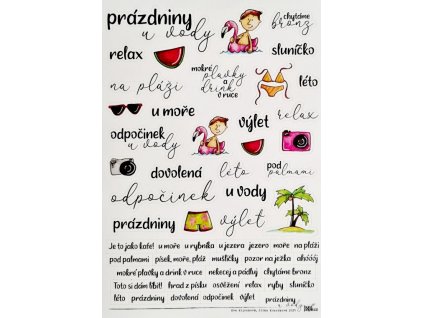 prázdniny
u vody
chytáme
bronz
relax
sluníčko
mokré
plavky
a
drink
v ruce
na pláži
léto
u moře
výlet
relax
odpočinek
u vody
dovolená
léto
pod
palmami
odpočinek
u vody
prázdniny
výlet
Je to jako kafe! u moře u rybníka u jezera jezero moře na pláži
pod palmami písek, moře, pláž mušličky pozor na ježka ahóóój
mokré plavky a drink v ruce nekecej a pádluj chytáme bronz
Toto si dám líbit! hrad z písku osvěžení relax ryby sluníčko
léto prázdniny dovolená odpočinek výlet prázdniny
u vody